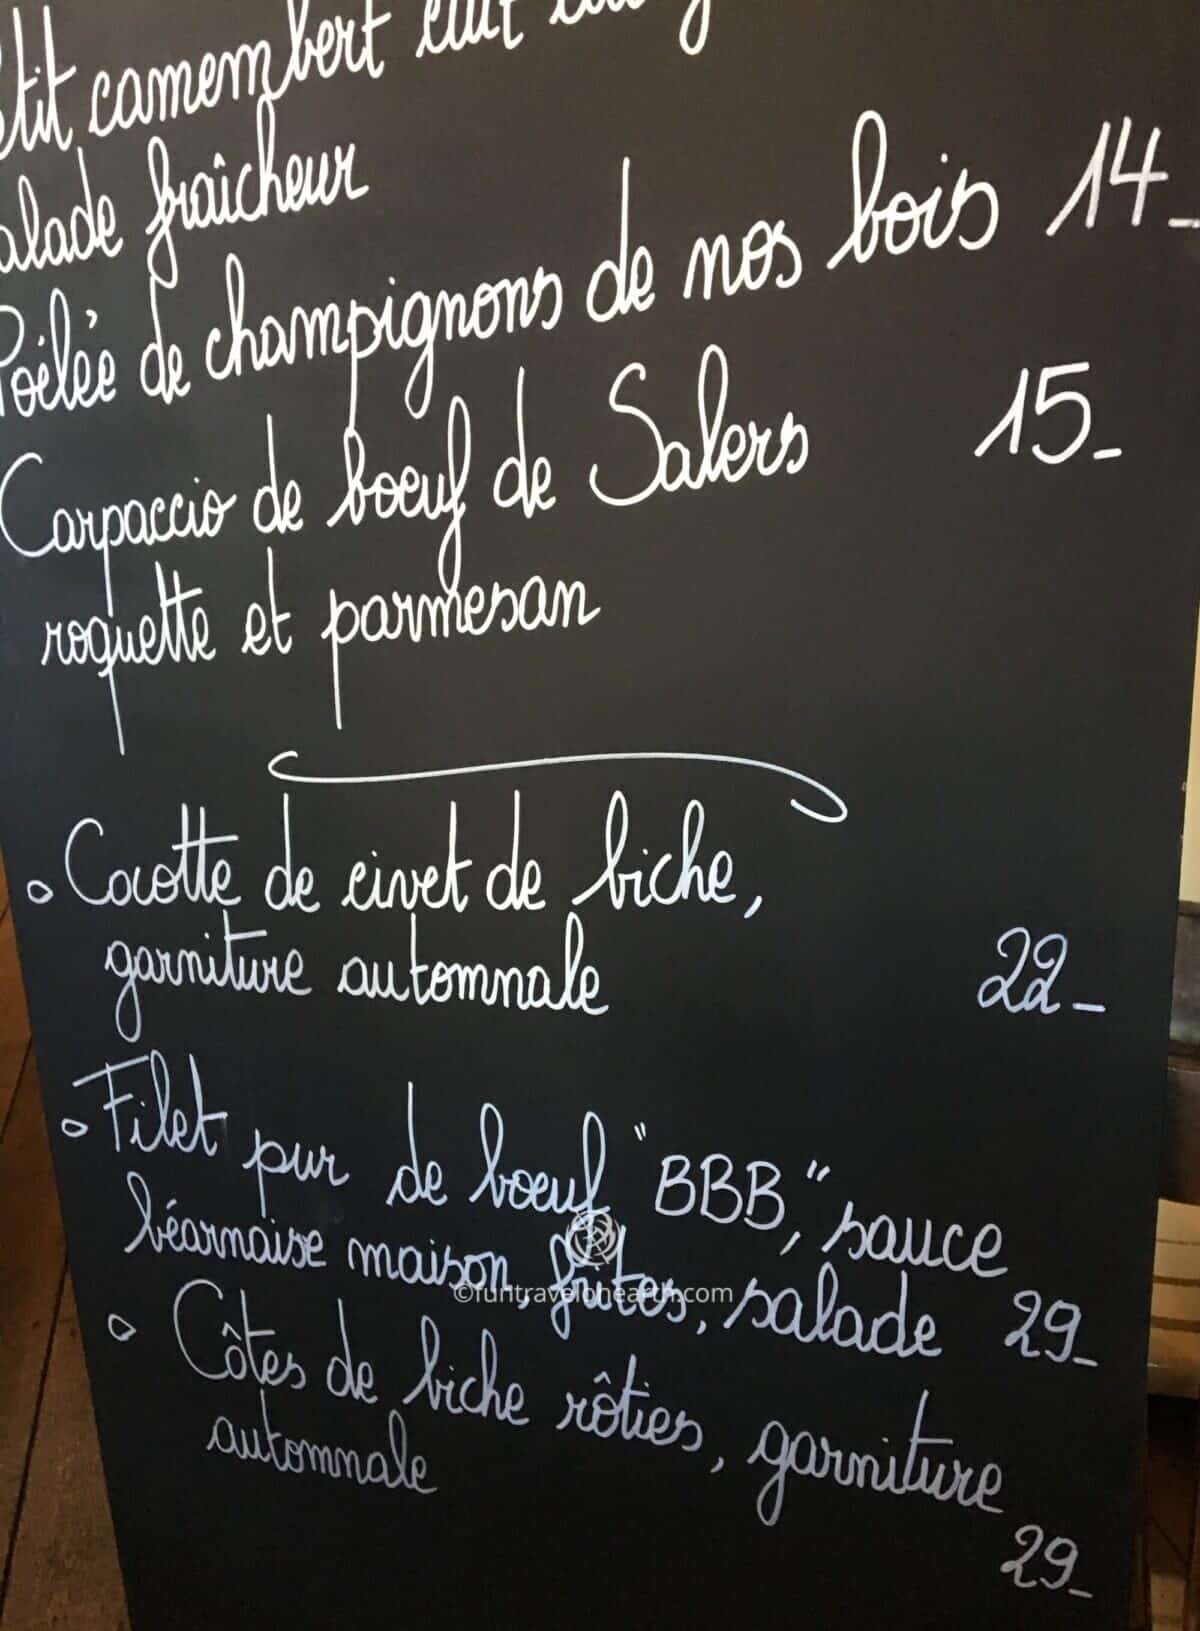 camembert
fraîcheur
Poêlée de champignons de nos bois 14_
Carpaccio de boeuf de Salers 15_
roquette et parmesan
Cocotte de civet de biche,
garniture automnale 22_
Filet pur de boeuf "BBB," sauce
béarnaise maison, frites, salade 29_
©funtravelohearth.com
Côtes de biche rôties, garniture
automnale
29_